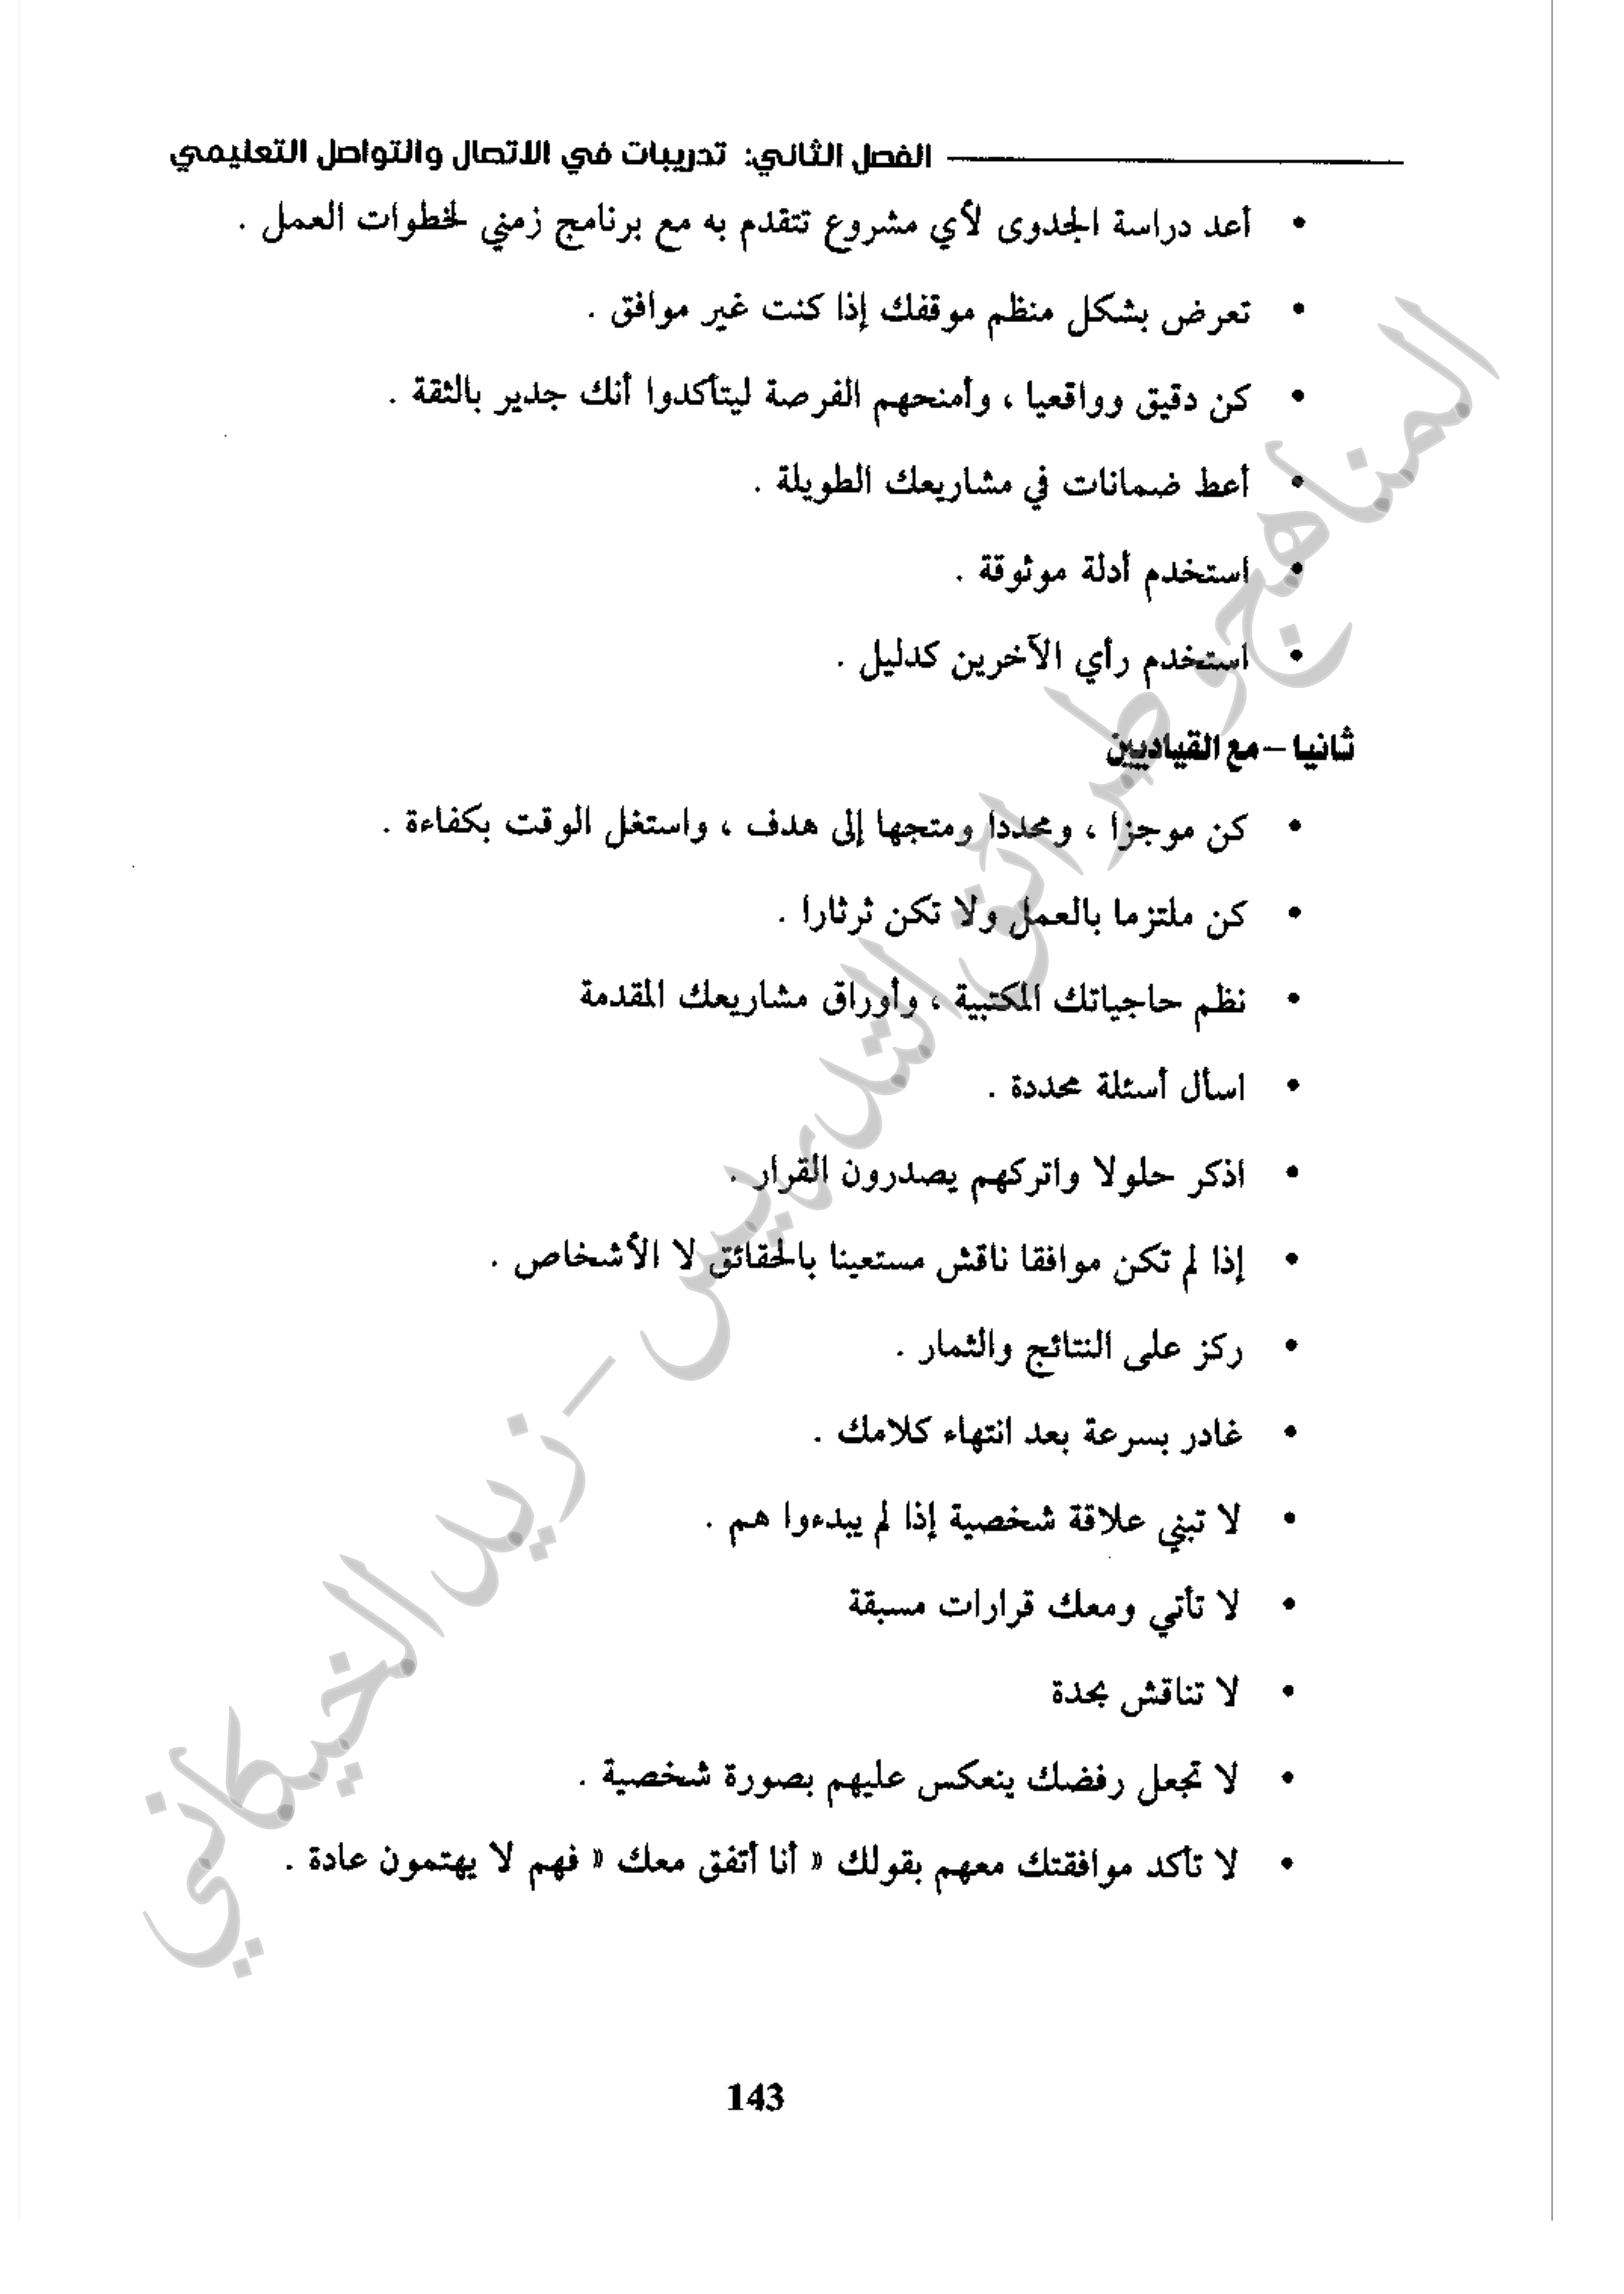 الفصل الثاني: تدريبات في الاتصال والتواصل التعليمي
• أعد دراسة الجدوى لأي مشروع تتقدم به مع برنامج زمني لخطوات العمل .
• تعرض بشكل منظم موقفك إذا كنت غير موافق .
• كن دقيق وواقعيا ، وأمنحهم الفرصة ليتأكدوا أنك جدير بالثقة .
• أعط ضمانات في مشاريعك الطويلة .
• استخدم أدلة موثوقة .
• استخدم رأي الآخرين كدليل .
ثانيا – مع القياديين
• كن موجزا ، ومحددا ومتجها إلى هدف ، واستغل الوقت بكفاءة .
• كن ملتزما بالعمل ولا تكن ثرثارا .
• نظم حاجياتك المكتبية ، وأوراق مشاريعك المقدمة
• اسأل أسئلة محددة .
• اذكر حلولا واتركهم يصدرون القرار .
• إذا لم تكن موافقا ناقش مستعينا بالحقائق لا الأشخاص .
• ركز على النتائج والثمار .
• غادر بسرعة بعد انتهاء كلامك .
• لا تبني علاقة شخصية إذا لم يبدءوا هم .
• لا تأتي ومعك قرارات مسبقة
• لا تناقش بحدة
• لا تجعل رفضك ينعكس عليهم بصورة شخصية .
• لا تأكد موافقتك معهم بقولك « أنا أتفق معك « فهم لا يهتمون عادة .
143
المناهج وطرائق التدريس - زيد الخيكاني